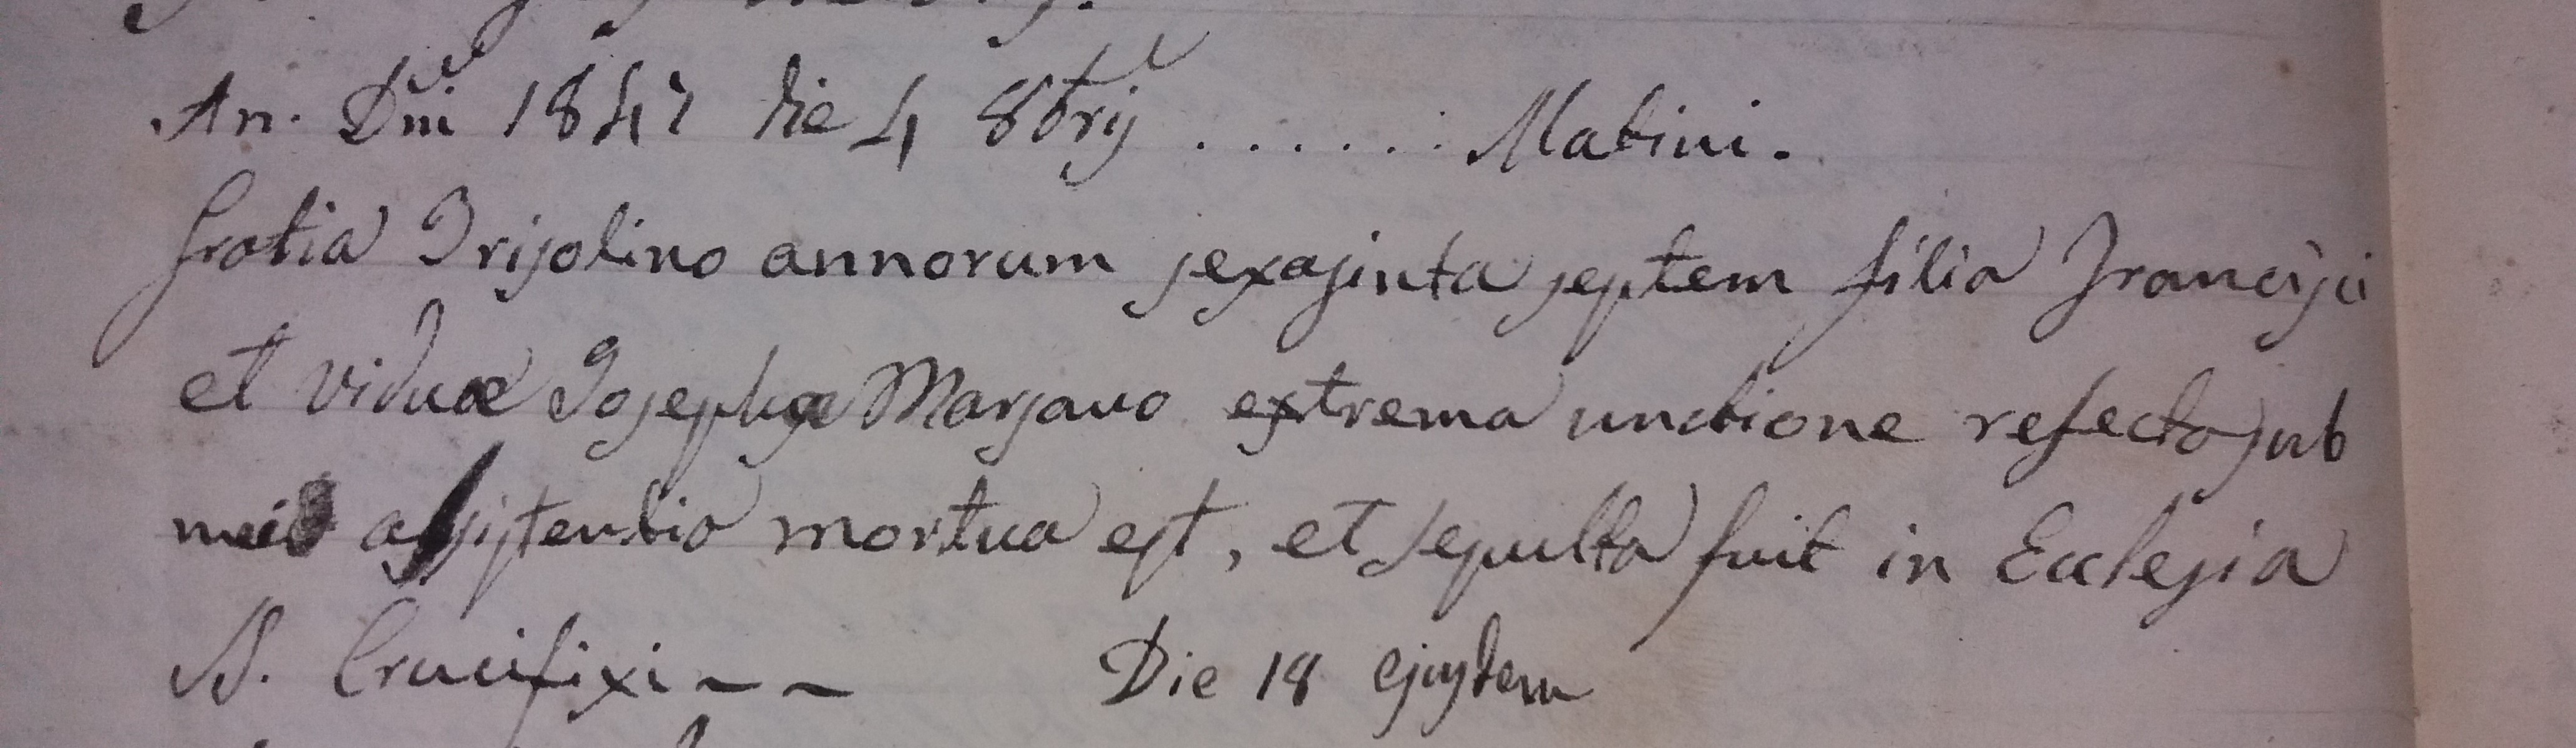 An. Dni 1847 die 4 8brij . . . . . . : Matini.
Gratia Trisolino annorum sexaginta septem filia Francisci
et viduæ Josephæ Marsano extrema unctione refecta sub
mei assistentia mortua est, et sepulta fuit in Ecclesia
S. Crucifixi ~ ~ Die 18 ejusdem